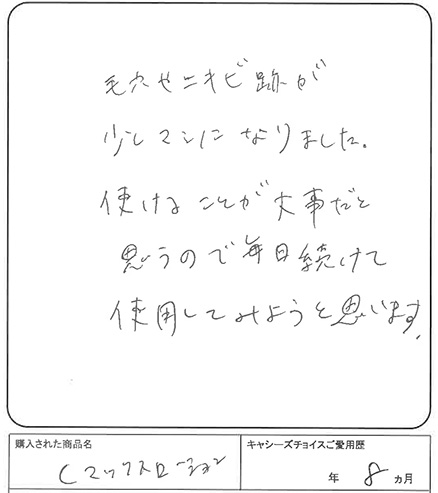 毛穴やニキビ跡が
少しマシになりました。
使けることが大事だと
思うので毎日続けて
使用してみようと思います。
購入された商品名
Cマックスローション
キャシーズチョイスご愛用歴
年 8 ヵ月